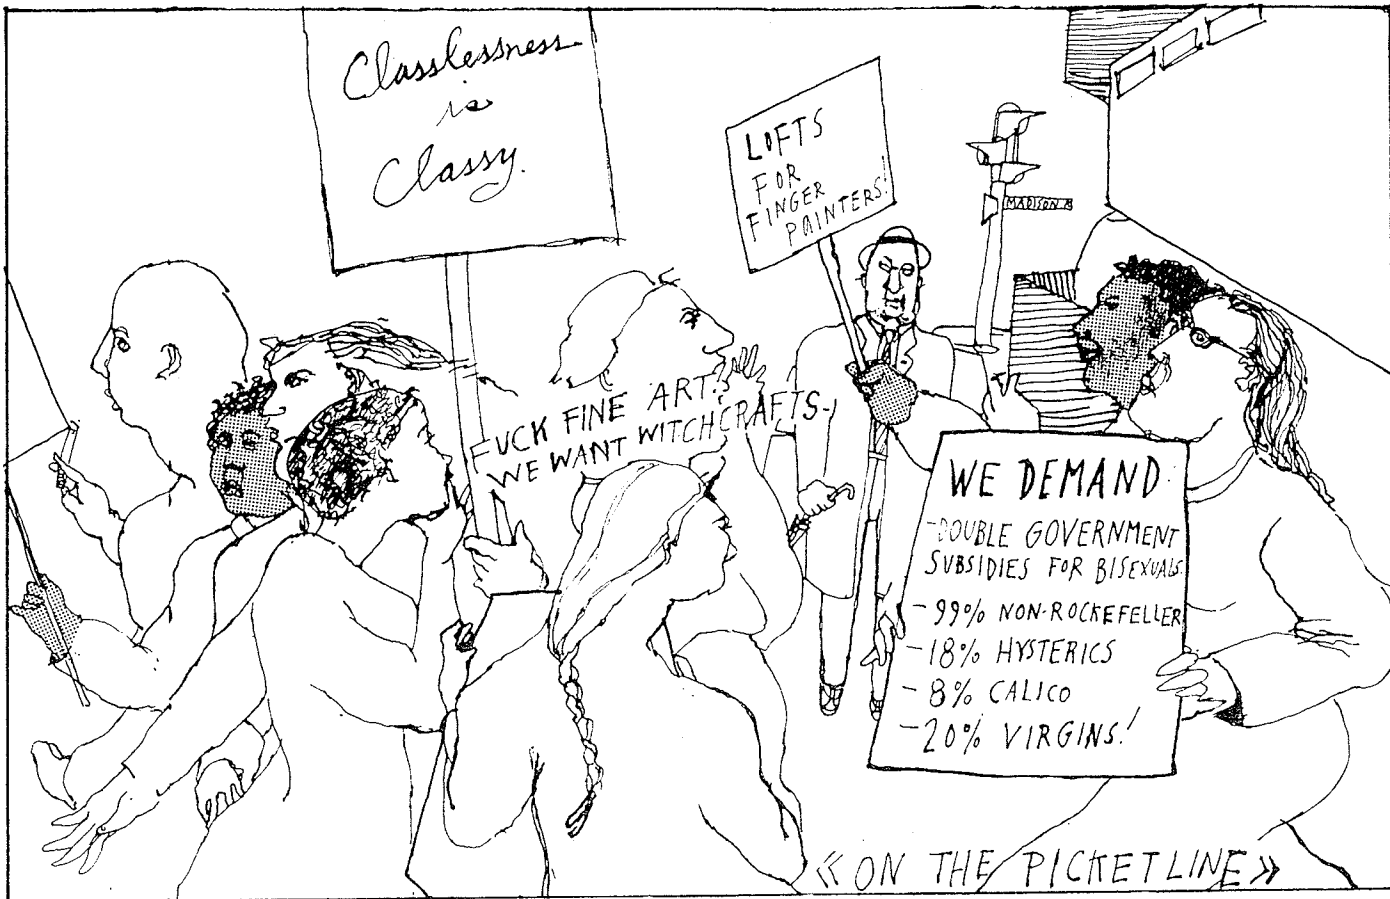 Classlessness
is
Classy.
LOFTS
FOR
FINGER
PAINTERS!
MADISON A
FUCK FINE ART.
WE WANT WITCHCRAFTS-!
WE DEMAND:
-DOUBLE GOVERNMENT
SUBSIDIES FOR BISEXUALS.
-99% NON-ROCKEFELLER
-18% HYSTERICS
-8% CALICO
-20% VIRGINS!
«ON THE PICKETLINE»